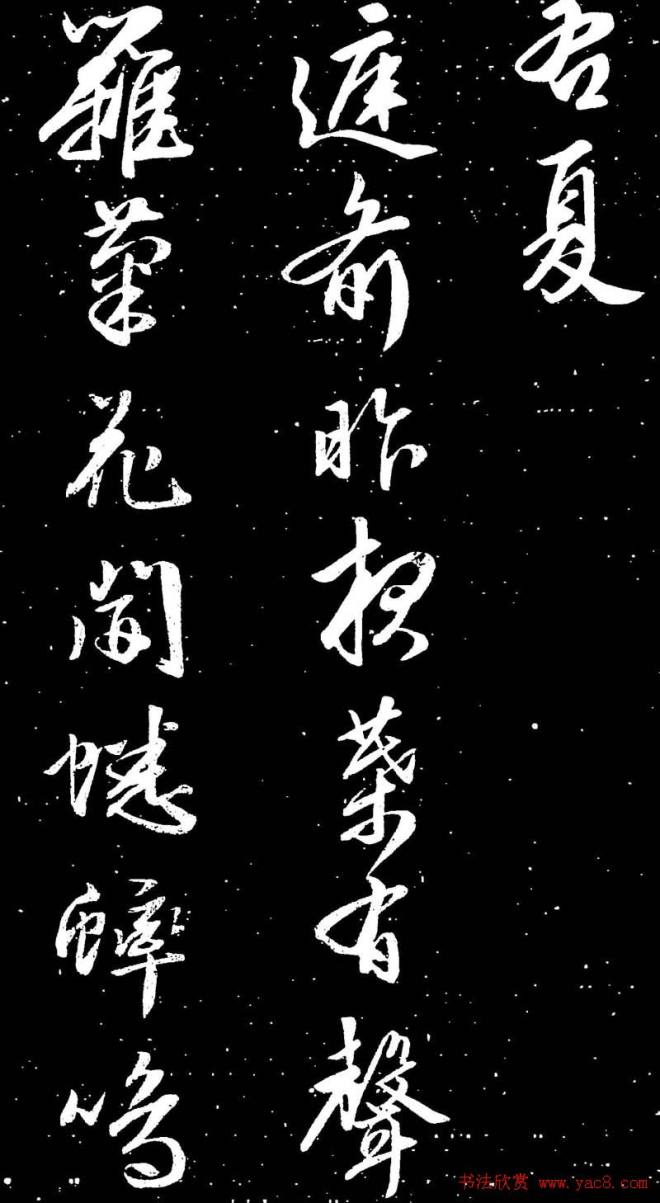 君夏
庭前昨葉有聲
籬菊花開蟋蟀鳴
书法欣赏 www.yac8.com